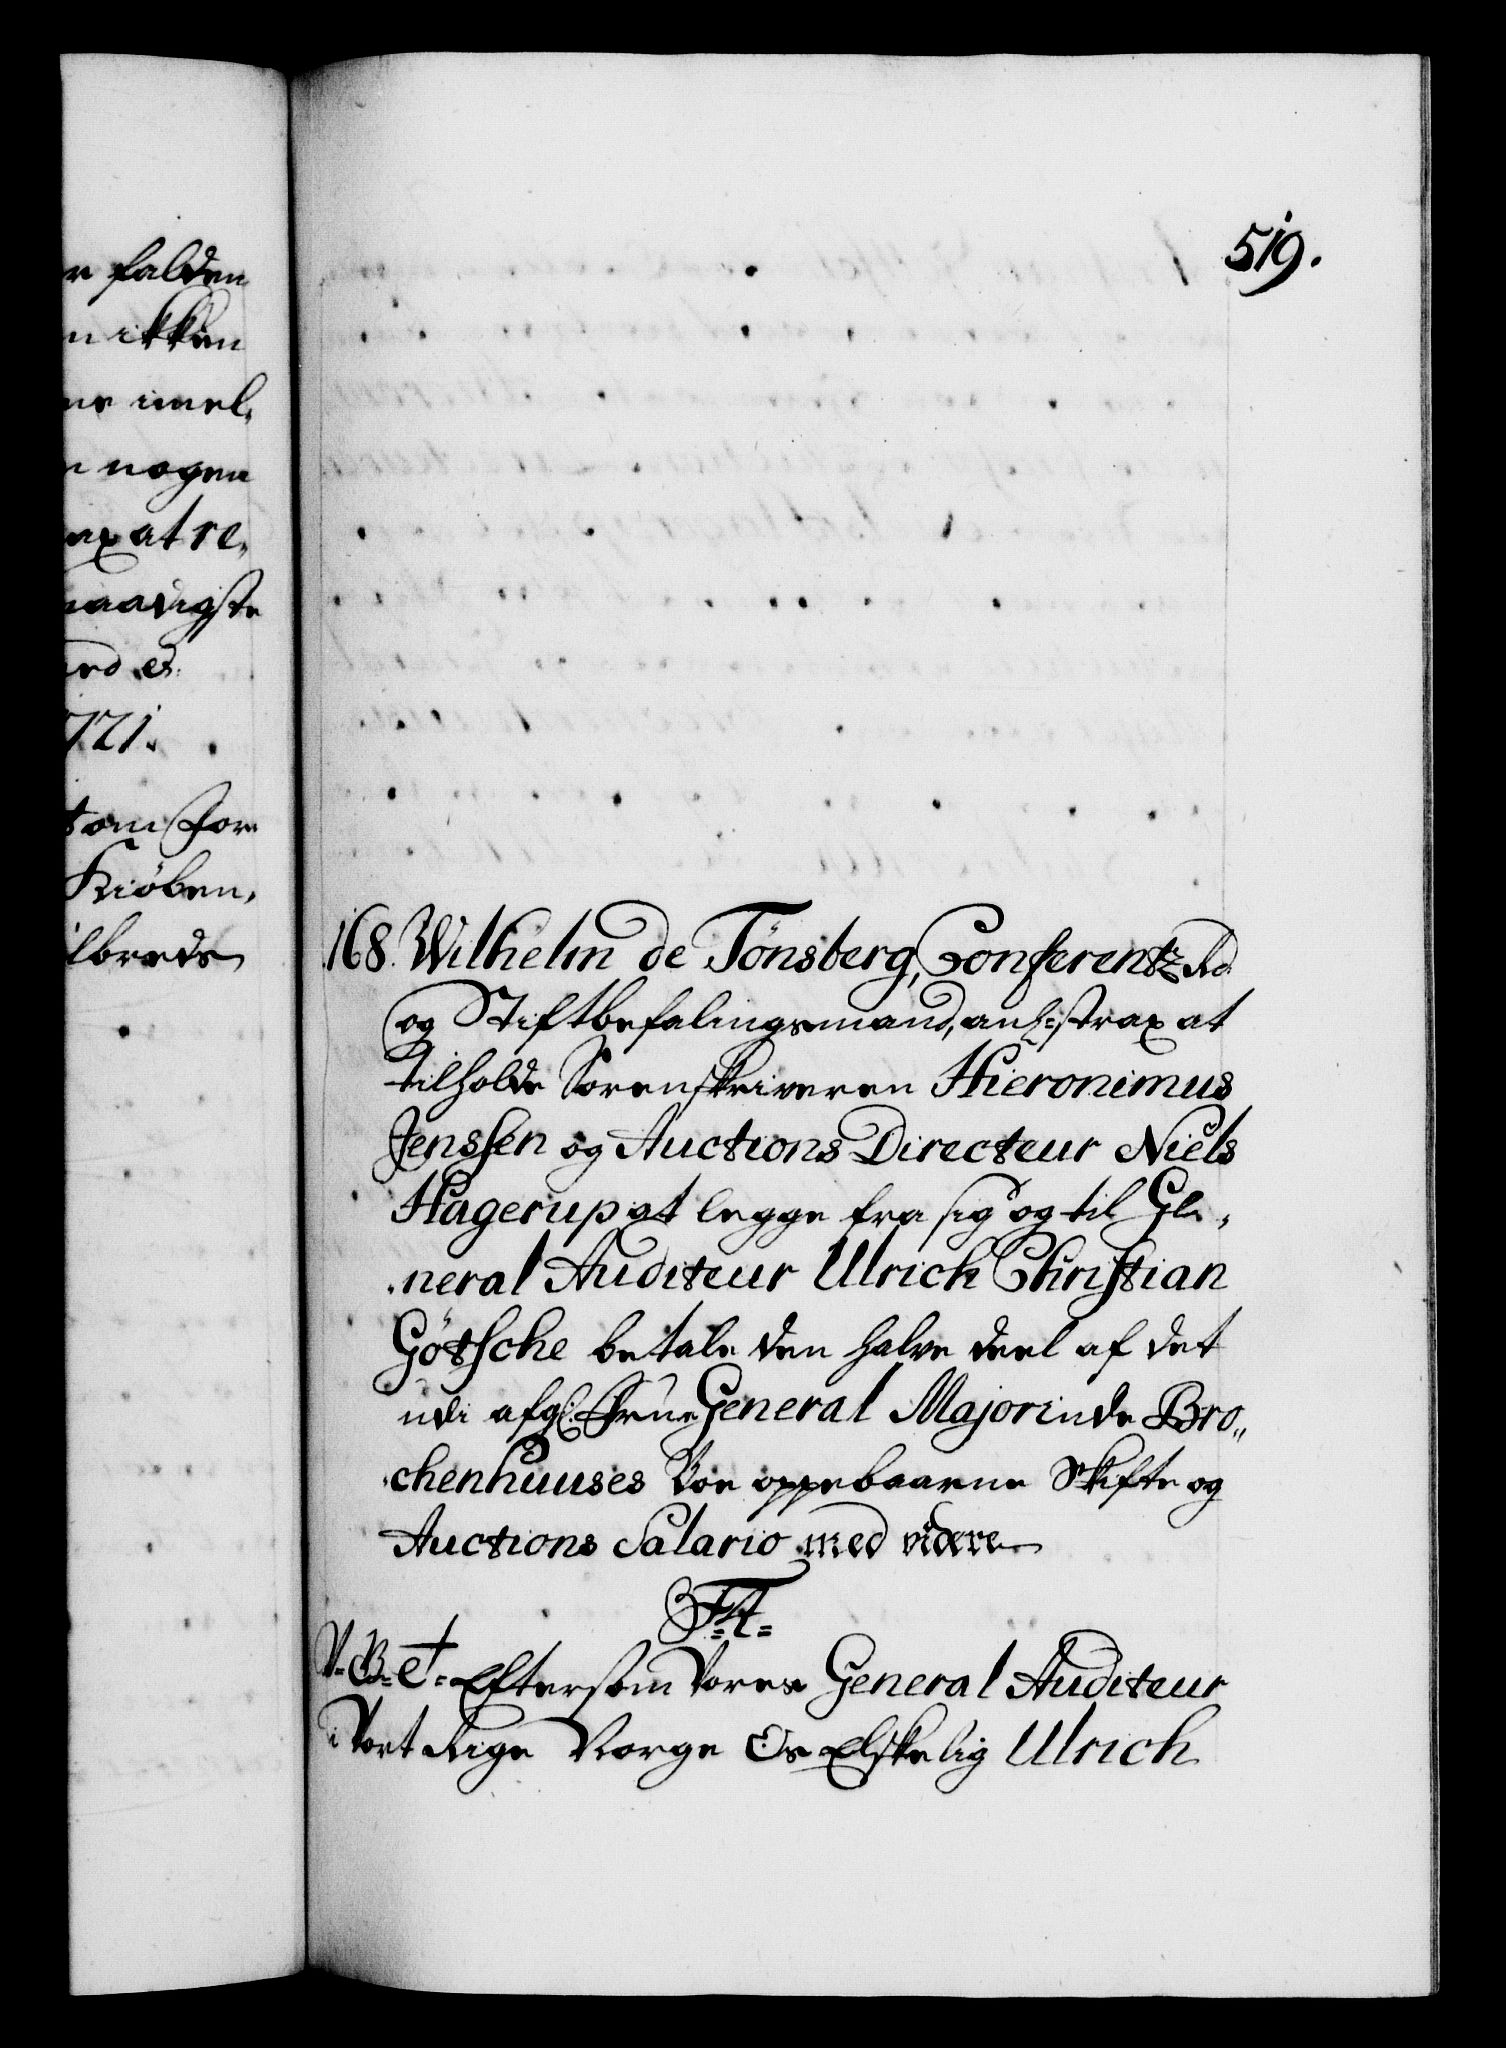 r falden
n ikken
ne imel,
n nogen
ax at re,
naadigste
1721.
t om for
Kiöben,
ilbreds
519.
168. Wilhelm de Tönsberg, Conferentz Rd.
og Stiftbefalingsmand, anl: strax at
tilholde Sorenskriveren Hieronimus
Jenssen og Auctions Directeur Niels
Hagerup at legge fra sig og til Ge,
neral Auditeur Ulrich Christian
Götsche betale den halve deel af det
udi afg: Frue General Majorinde Bro,,
chenhuuses Boe oppebaarne Skifte og
Auctions Salario med videre
F:4=
V=G=et= Eftersom Vores General Auditeur
i Vort Rige Norge Os Elskelig Ulrich